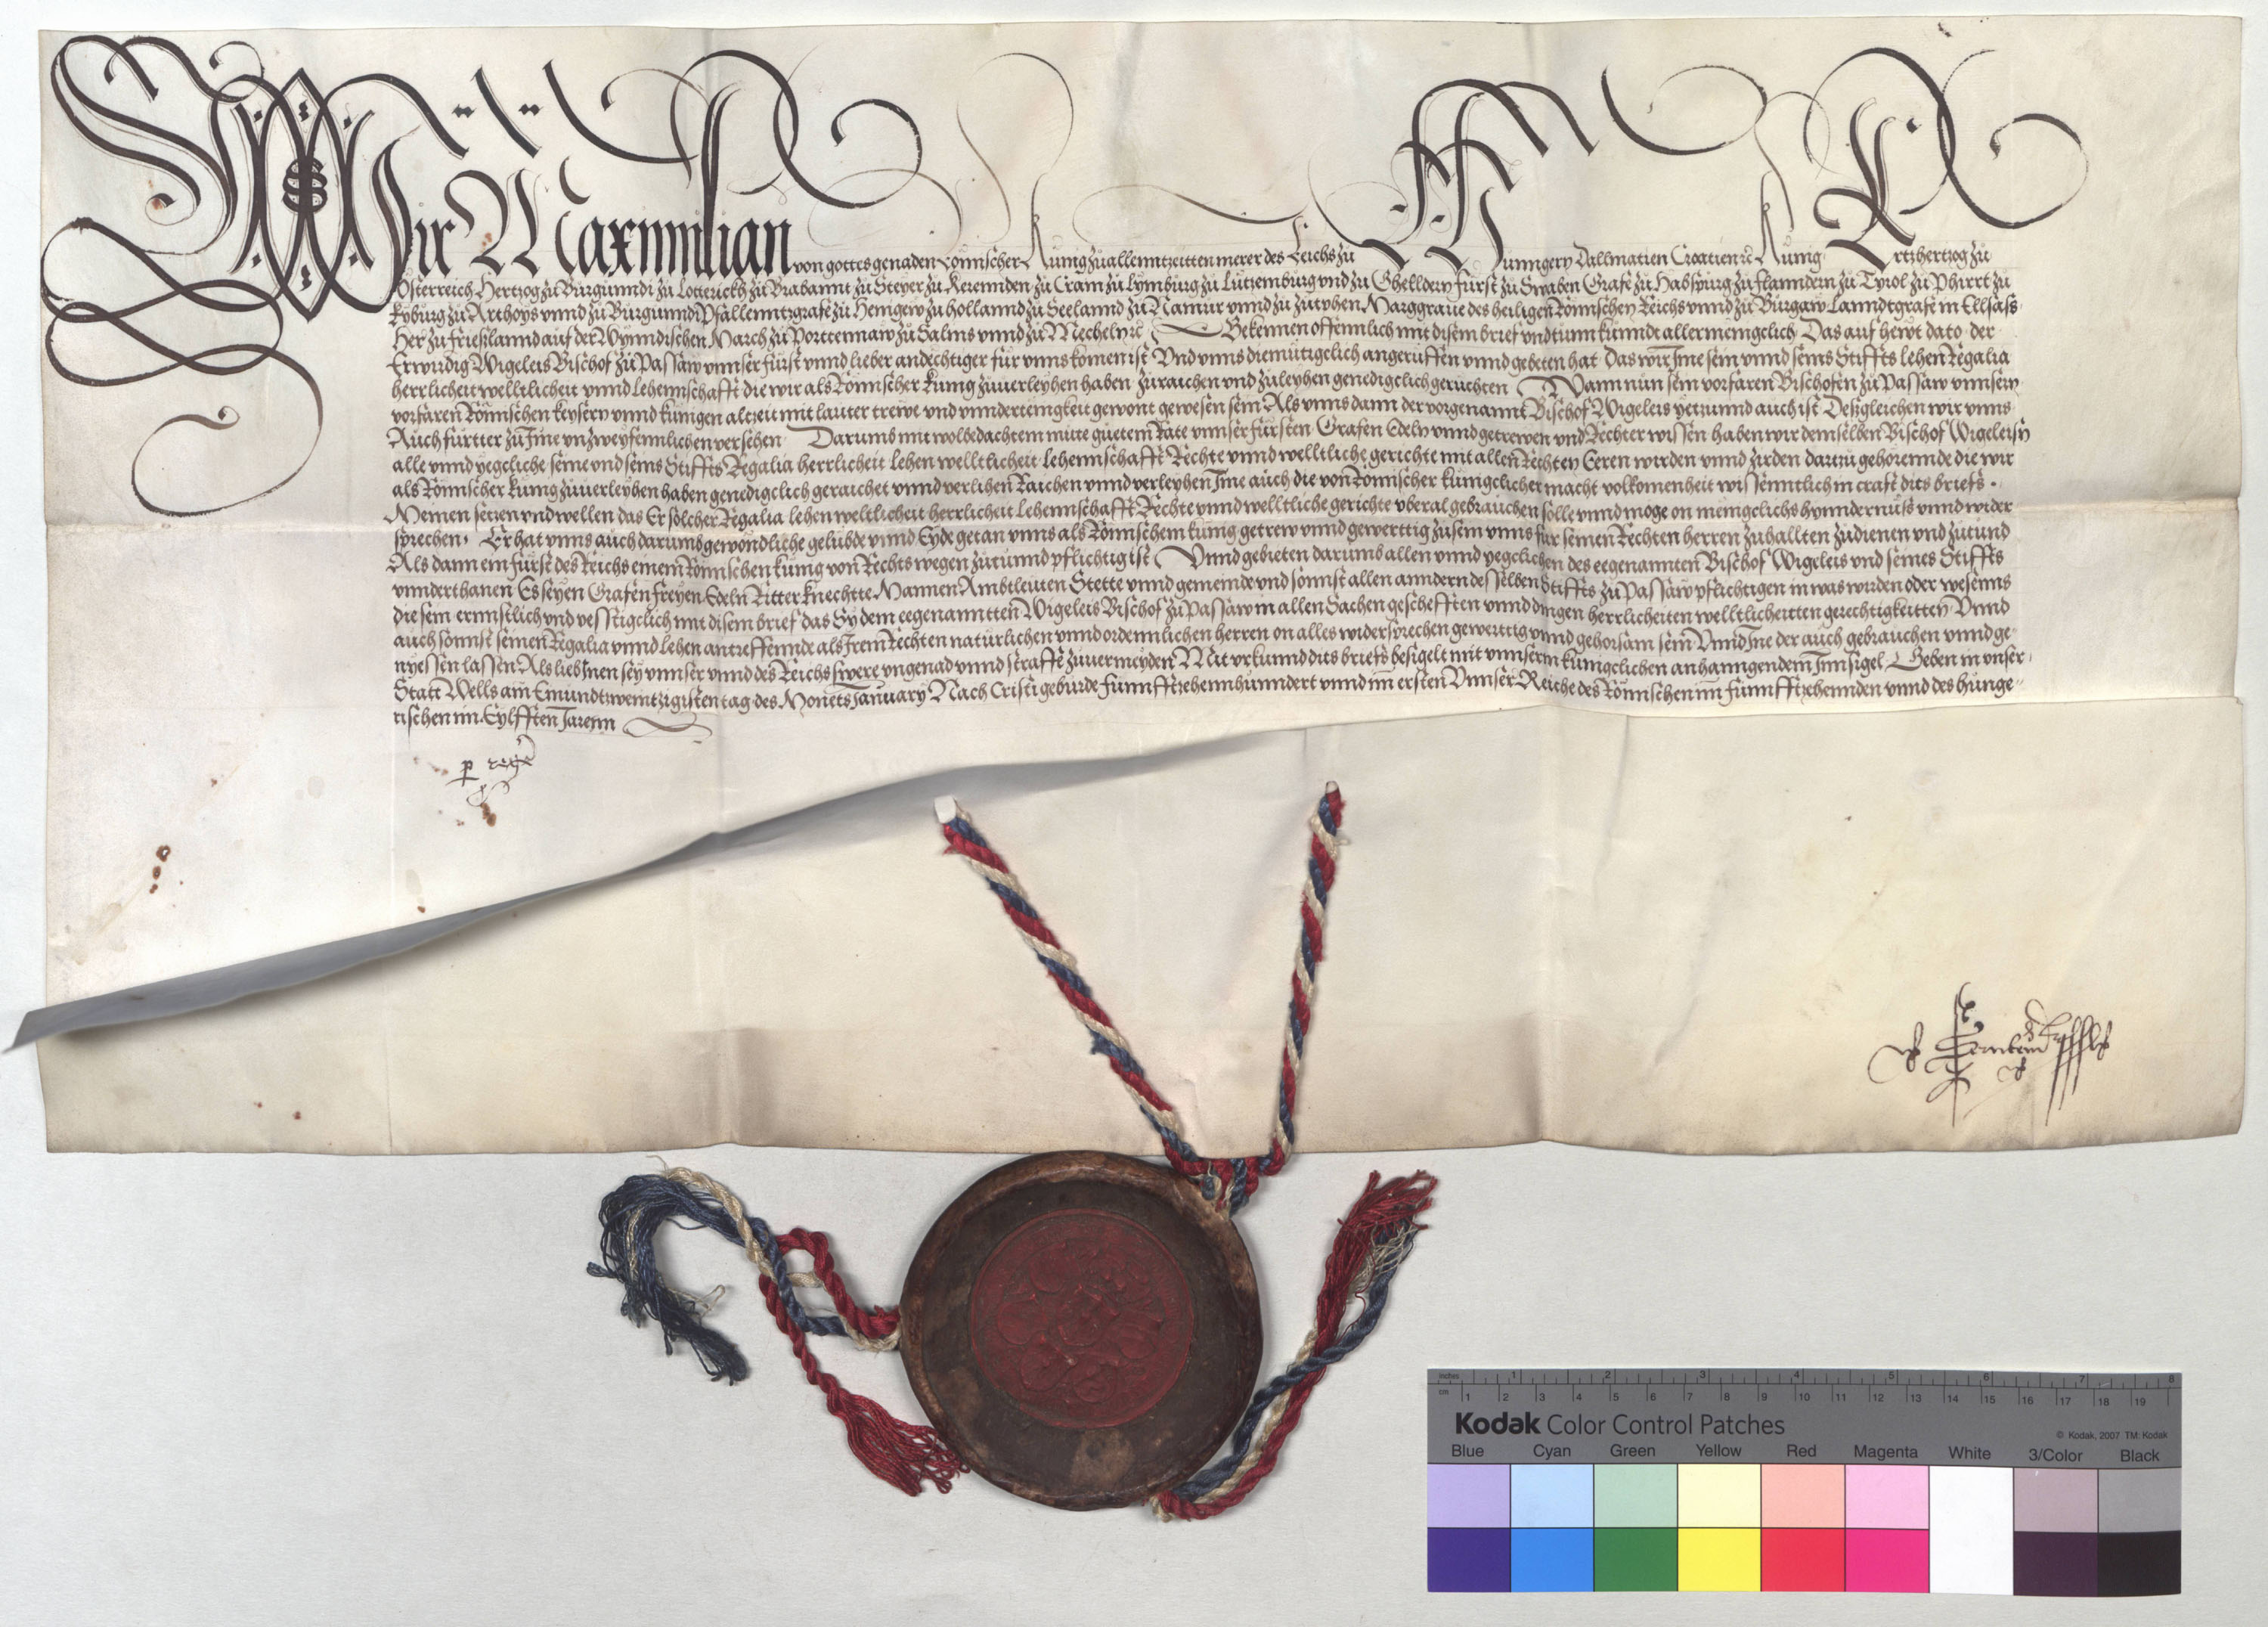 Wir Maximilian von gottes genaden Römischer Kunig zu allenntzeitten merer des Reichs zu Hunngern Dallmatien Croatien ꝛc Kunig Ertzhertzog zu
Österreich Hertzog zu Burgunndi zu Lotterickh zu Brabannt zu Steyer zu Kernnden zu Crain zu Lymburg zu Lutzemburg vnd zu Ghelldern Fürst zu Swaben Grafe zu Habspurg zu flanndern zu Tyrol zu Phirrt zu
Kyburg zu Arthoys vnnd zu Burgunndi Pfallenntzgrafe zu Henigew zu hollannd zu Seelannd zu Namur vnnd zu zutphen Marggraue des heiligen Römischen Reichs vnnd zu Burgaw Lanndtgrafe in Ellsass
Her zu frießlannd auf der Wynndischen March zu Porttennaw zu Salins vnnd zu Mecheln ꝛc Bekennen offennlich mit disem brief vnd tunn kunndt allermeniglich Das auf hewt dato der
Erwirdig Wigeleis Bischof zu Passaw vnnser fürst vnnd lieber andechtiger für vnns komen ist Vnd vnns diemütigclich angeruffen vnnd gebeten hat Das wir Ime sein vnnd seins Stiffts lehen Regalia
herrlicheit welltlicheit vnnd lehennschafft die wir als Römischer kunig zuuerleyhen haben zuraichen vnd zuleyhen genedigclich geruchten Wann nun sein vorfaren Bischofen zu Passaw vnnsern
vorfaren Römischen keysern vnnd kunigen alzeit mit lauter trewe vnd vnnderteinigkeit gewont gewesen sein Als vnns dann der vorgenannt Bischof Wigeleis yetzunnd auch ist Deßgleichen wir vnns
Auch furtter zu Ime vnzweyfennlichen versehen Darumb mit wolbedachtem mute gutem Rate vnnser fürsten Grafen Edeln vnnd getrewen vnd Rechter wissen haben wir demselben Bischof Wigeleisn
alle vnnd yegcliche seine vnd seins Stiffts Regalia herrlicheit lehen welltlicheit lehennschafft Rechte vnnd welltliche gerichte mit allen Rechten Eeren wirden vnnd zirden darzu gehorennde die wir
als Römischer kunig zuuerleyhen haben genedigclich geraichet vnnd verlihen Raichen vnnd verleyhen Ime auch die von Römischer kunigclicher macht volkomenheit wissenntlich in craft dits briefs
Meinen setzen vnd wellen das Er solcher Regalia lehen weltlicheit herrlicheit lehennschafft Rechte vnnd welltliche gerichte vberal gebrauchen solle vnnd moge on meingclichs hynndernuss vnnd wider
sprechen Er hat vnns auch darumb gewöndliche gelubde vnnd Eyde getan vnns als Römischem kunig getrew vnnd gewerttig zusein vnns für seinen Rechten herren zuhallten zudienen vnd zutund
Als dann ein fürst des Reichs einem Römischen kunig von Rechts wegen zutunnd pflichtig ist Vnnd gebieten darumb allen vnnd yegclichen des eegenannten Bischof Wigeleis vnd seines Stiffts
vnnderthanen Es seyen Grafen freyen Edeln Ritter knechtte Mannen Ambtleuten Stette vnnd gemeinde vnd sonnst allen anndern desselben Stiffts zu Passaw pflichtigen in was wirden oder wesenns
die sein ernnstlich vnd vesstigclich mit disem brief das Sy dem eegenanntten Wigeleis Bischof zu Passaw in allen Sachen geschefften vnnd dingen herrlicheiten welltlicheitten gerechtigkeitten Vnnd
auch sonnst seinen Regalia vnnd lehen antreffennde als Irem Rechten natürlichen vnnd ordennlichen herren on alles widersprechen gewerttig vnnd gehorsam sein Vnnd Ine der auch gebrauchen vnnd ge
nyessen lassen Als lieb Inen sey vnnser vnnd des Reichs swere vngenad vnnd straffe zuuermeyden Mit vrkunnd dits briefs besigelt mit vnnserm kunigclichen anhanngendem Innsigel Geben in vnser
Statt Wells am Einundtzweintzigisten tag des Monets January Nach Cristi geburde Funnfftzehennhunndert vnnd im ersten Vnnser Reiche des Römischen im funnfftzehennden vnnd des hunge
rischen im Eylfften Jarenn
p rege
Kodak Color Control Patches
© Kodak, 2007 TM: Kodak
inches 1 2 3 4 5 6 7 8
cm 1 2 3 4 5 6 7 8 9 10 11 12 13 14 15 16 17 18 19
Blue Cyan Green Yellow Red Magenta White 3/Color Black